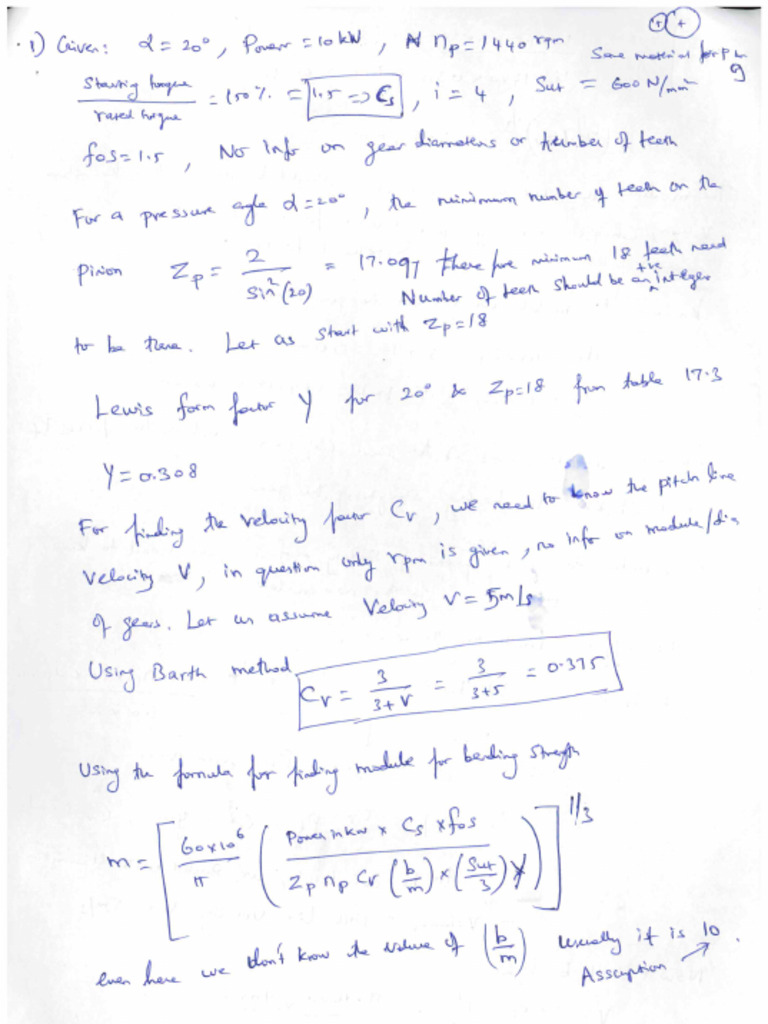 1) Given: α = 20°, Power = 10 kW, N np = 1440 rpm
Same material for p & g
Starting torque / rated torque = 150 % = 1.5 => Cs, i = 4, Sut = 600 N/mm²
fos = 1.5, No Info on gear diameters or number of teeth
For a pressure angle α = 20°, the minimum number of teeth on the
Pinion Zp = 2 / sin²(20) = 17.097 therefore minimum 18 teeth need
Number of teeth should be an +ve integer
to be there. Let us start with Zp = 18
Lewis form factor Y for 20° & Zp = 18 from table 17.3
Y = 0.308
For finding the velocity factor Cv, we need to know the pitch line
velocity V, in question only rpm is given, no info on module/dia
of gears. Let us assume Velocity V = 5 m/s
Using Barth method
Cv = 3 / (3 + V) = 3 / (3+5) = 0.375
Using the formula for finding module for bending strength
m = [ 60 x 10⁶ / π ( Power in kW x Cs x fos / Zp np Cv (b/m) x (Sut/3) Y ) ]^1/3
even here we don't know the value of (b/m) usually it is 10.
Assumption